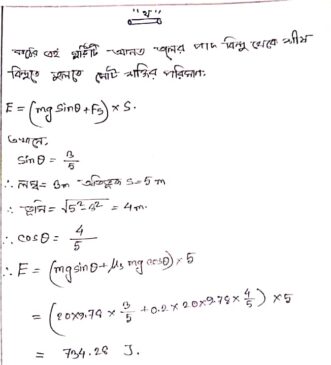 "খ"
কাঠের এই গুড়িটি আনত তলের পাদ বিন্দু থেকে শীর্ষ
বিন্দুতে তুলতে মোট শক্তির পরিমাণ:
E = (mg sinθ + Fs) × S.
এখানে,
sinθ = 3/5
∴ লম্ব = 3m অতিভুজ s = 5 m
∴ ভূমি = √5²-3² = 4m.
∴ cosθ = 4/5
∴ E = (mg sinθ + μs mg cosθ) × 5
= (20×9.78 × 3/5 + 0.2 × 20×9.78 × 4/5) × 5
= 734.28 J.